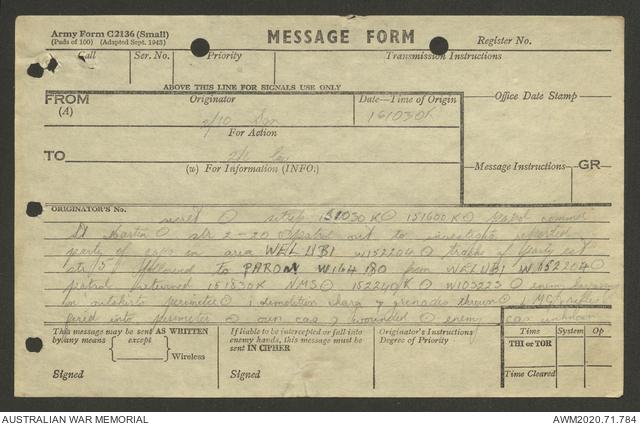 Army Form C2136 (Small)
(Pads of 100) (Adapted Sept. 1943)
MESSAGE FORM
Register No.
Call Ser. No. Priority Transmission Instructions
ABOVE THIS LINE FOR SIGNALS USE ONLY
FROM
(A)
Originator
Date—Time of Origin
Office Date Stamp
2/10
161030K
For Action
TO
Message Instructions GR
(w) For Information (INFO.)
ORIGINATOR'S No.
secret O sitrep K O 151600K O patrol
Lt Martin O str 2-20 O patrol out to investigate reported
party of in area WELUBI W152204 O tracks of party est
str 15 followed to PAROM W164180 from WELUBI W152204 O
patrol returned 151830K NMS O 152240K O W103223 O enemy
on perimeter O 1 demolition charge grenades thrown O LMG
fired into perimeter O own cas 7 wounded O enemy
cas unknown
This message may be sent AS WRITTEN
by any means except
Wireless
Signed
If liable to be intercepted or fall into
enemy hands, this message must be
sent IN CIPHER
Signed
Originator's Instructions
Degree of Priority
Time System Op
THI or TOR
Time Cleared
AUSTRALIAN WAR MEMORIAL
AWM2020.71.784